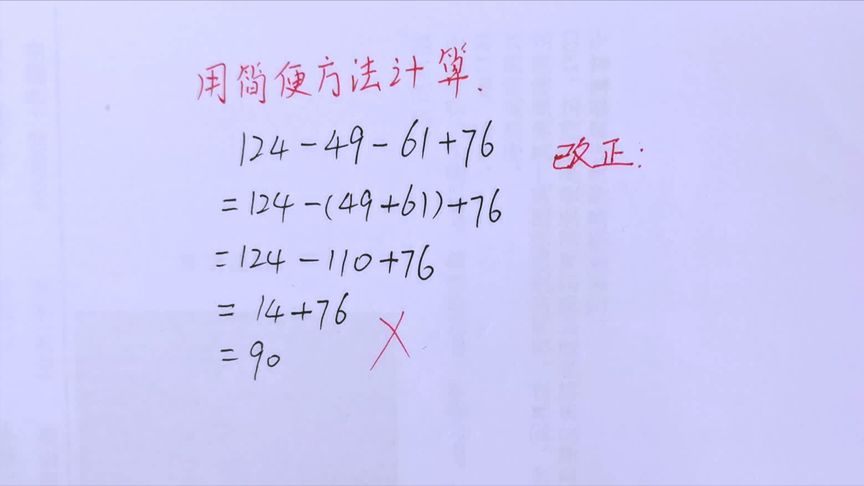 用简便方法计算.
124-49-61+76
=124-(49+61)+76
=124-110+76
=14+76
=90
改正: